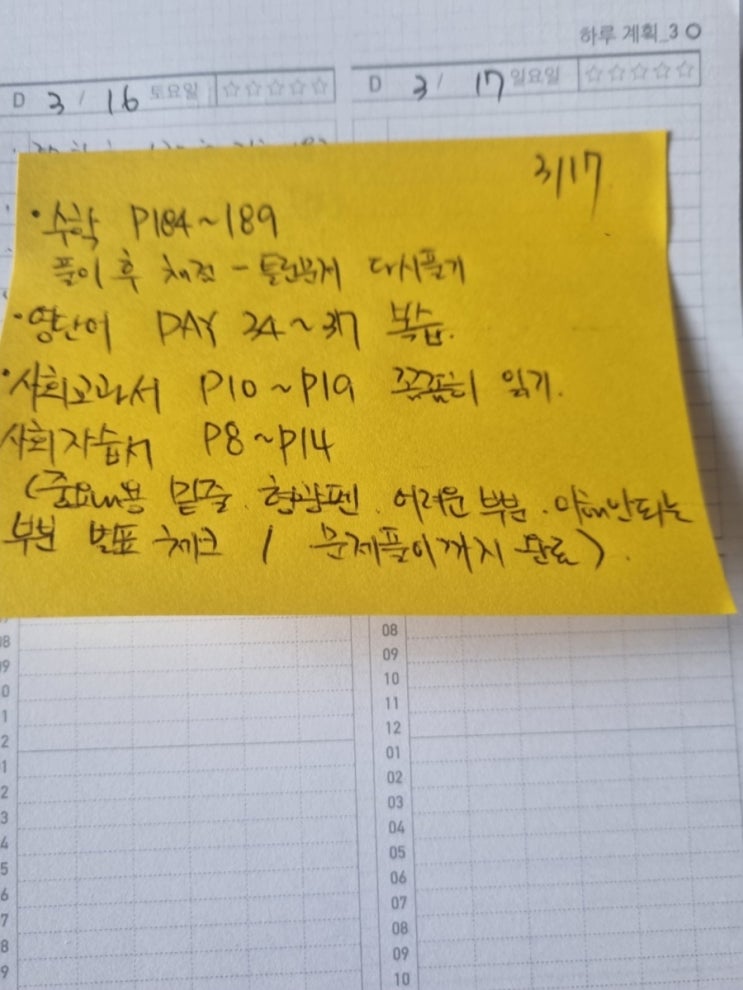 하루 계획_30
D 3 / 16 토요일 ☆☆☆☆☆
D 3 / 17 일요일 ☆☆☆☆☆
3/17
• 수학 P184~189
풀이 후 채점 - 틀린문제 다시풀기
• 영단어 DAY 34~37 복습.
• 사회교과서 P10~P19 꼼꼼히 읽기.
사회자습서 P8~P14
(중요내용 밑줄. 형광펜. 어려운 부분. 이해안되는
부분 별표 체크 / 문제풀이까지 완료).
08
09
10
11
12
01
02
03
04
05
06
07
08
09
10